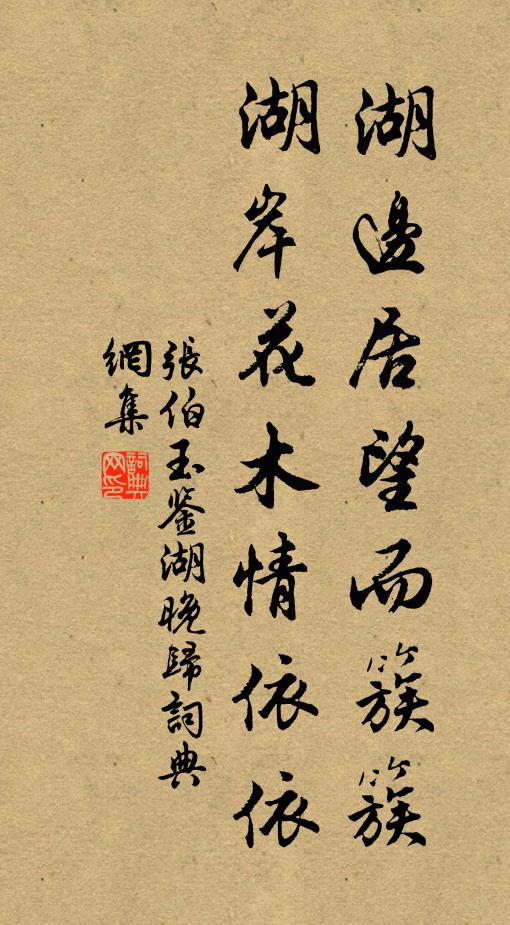 湖邊居望而簇簇
湖岸花木情依依
張伯玉鉴湖晚歸詞典
網集
詞典网印